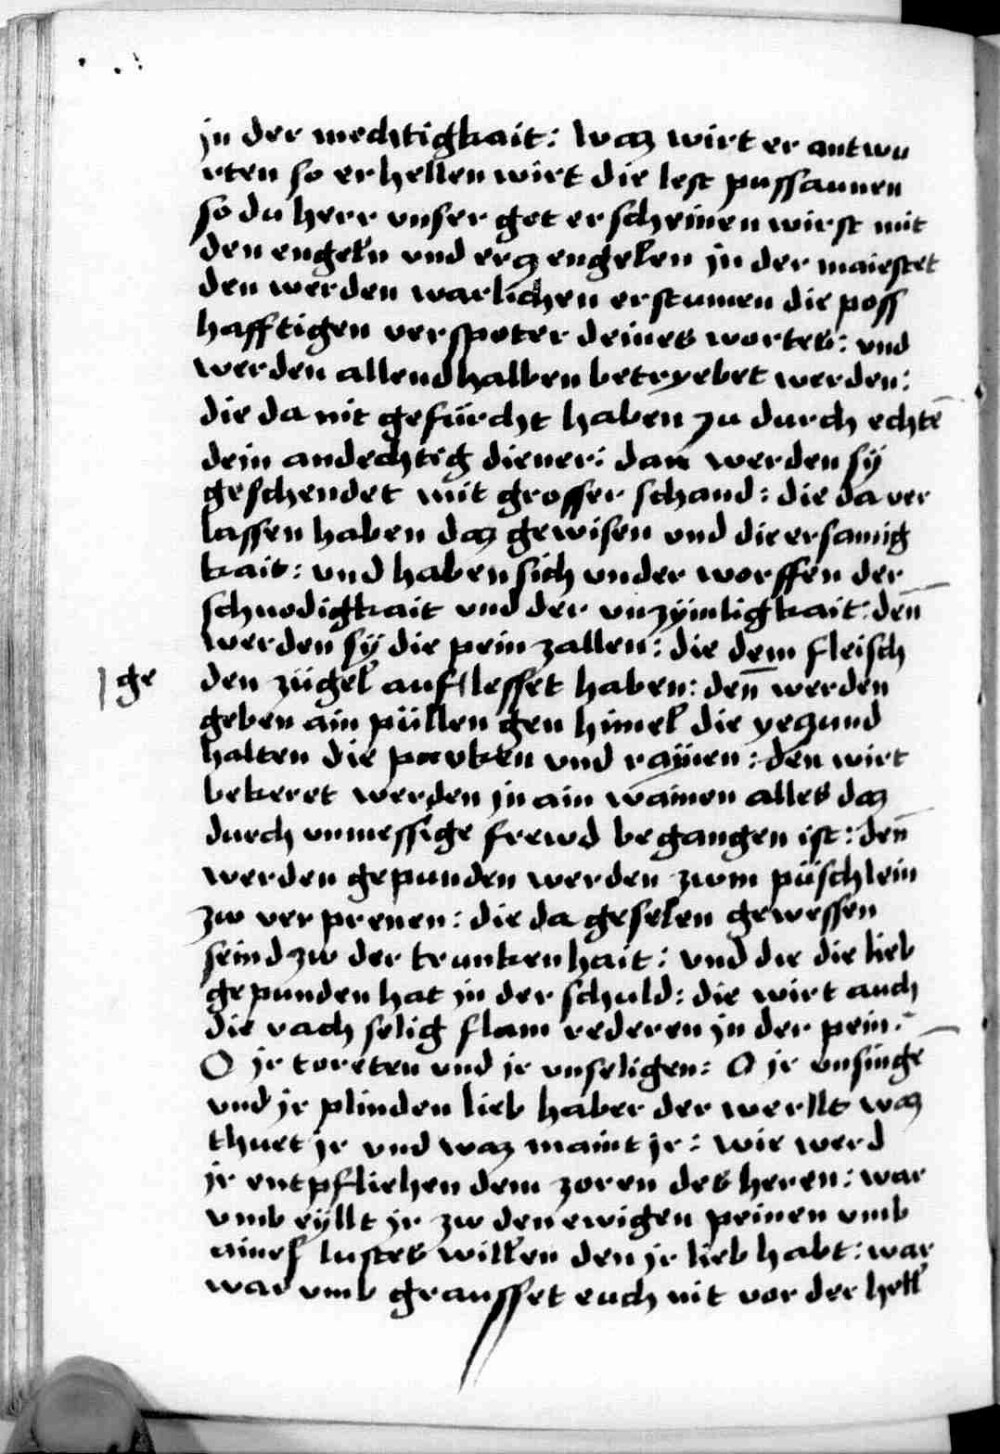 jn der mechtigkait: Waz wirt er antwu
rten so erhellen wirt die lest pussaunen
so du herr vnser got erscheinen wirst mit
den engeln vnd ercz engelen jn der maiestet
den werden warlichen erstumen die poss
hafftigen verspoter deines wortes: vnd
werden allendhalben betryebet werden:
die da nit gefürcht haben zu durch echtē
dein andechtig diener: dan werden sÿ
geschendet mit grosser schand: die da ver
lassen haben daz gewisen vnd die ersamig
kait: vnd haben sich vnder worffen der
schnodigkait vnd der vnzÿmligkait: den̄
werden sÿ die pein zallen: die dem fleisch
ge
den zügel auf lesset haben: den̄ werden
geben ain püllen gen himel die yeczund
halten die pavken vnd raÿen: den wirt
bekeret werden jn ain wainen alles daz
durch vnmessige frewd begangen ist: den̄
werden gepunden werden zwm püschlein
zw ver prenen: die da geselen gewessen
seind zw der trunkenhait: vnd die die lieb
gepunden hat jn der schuld: die wirt auch
die rach selig flam rederen jn der pein:
O jr toreten vnd jr vnseligen: O jr vnsingē
vnd jr plinden lieb haber der werllt waz
thuet jr vnd waz maint jr: wie werd
jr entpfliehen dem zoren des heren: war
vmb eÿllt jr zw den ewigen peinen vmb
aines lustes willen den jr lieb habt: war
war vmb grausset euch nit vor der hell